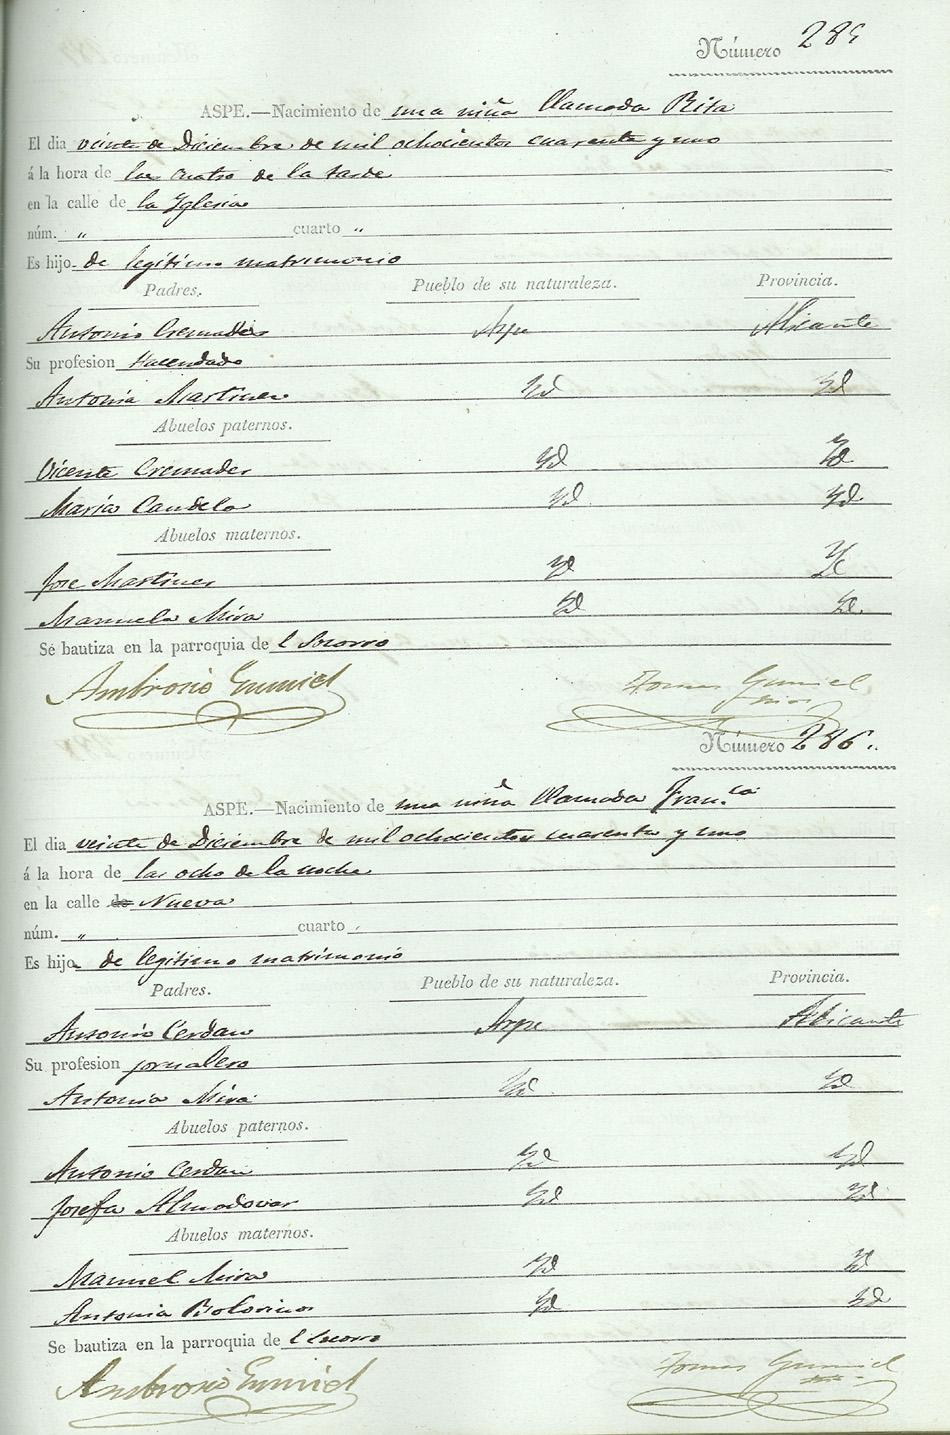 Número 285
ASPE.—Nacimiento de una niña llamada Rita
El dia veinte de Diciembre de mil ochocientos cuarenta y uno
á la hora de las cuatro de la tarde
en la calle de la Yglesia
núm. " cuarto "
Es hijo de legitimo matrimonio
Padres. Pueblo de su naturaleza. Provincia.
Antonio Cremades Aspe Alicante
Su profesion Hacendado
Antonia Martinez Yd Yd
Abuelos paternos.
Vicente Cremades Yd Yd
Maria Candela Yd Yd
Abuelos maternos.
Jose Martinez Yd Yd
Manuela Mira Yd Yd
Sé bautiza en la parroquia de l Socorro
Ambrosio Gumiel Tomas Gumiel
Número 286.
ASPE.—Nacimiento de una niña llamada Fran.ca
El dia veinte de Diciembre de mil ochocientos cuarenta y uno
á la hora de las ocho de la noche
en la calle de Nueva
núm. " cuarto
Es hijo de legitimo matrimonio
Padres. Pueblo de su naturaleza. Provincia.
Antonio Cerdan Aspe Alicante
Su profesion jornalero
Antonia Mira Yd Yd
Abuelos paternos.
Antonio Cerdan Yd Yd
Josefa Almodovar Yd Yd
Abuelos maternos.
Manuel Mira Yd Yd
Antonia Yd Yd
Se bautiza en la parroquia de l Socorro
Ambrosio Gumiel Tomas Gumiel